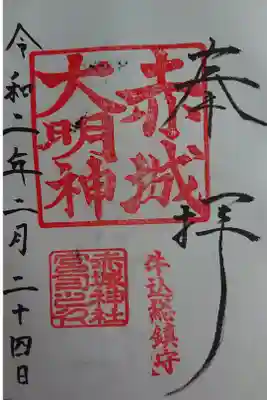 奉拝
赤城
大明神
牛込総鎮守
赤城神社
宮司之印
令和二年二月二十四日